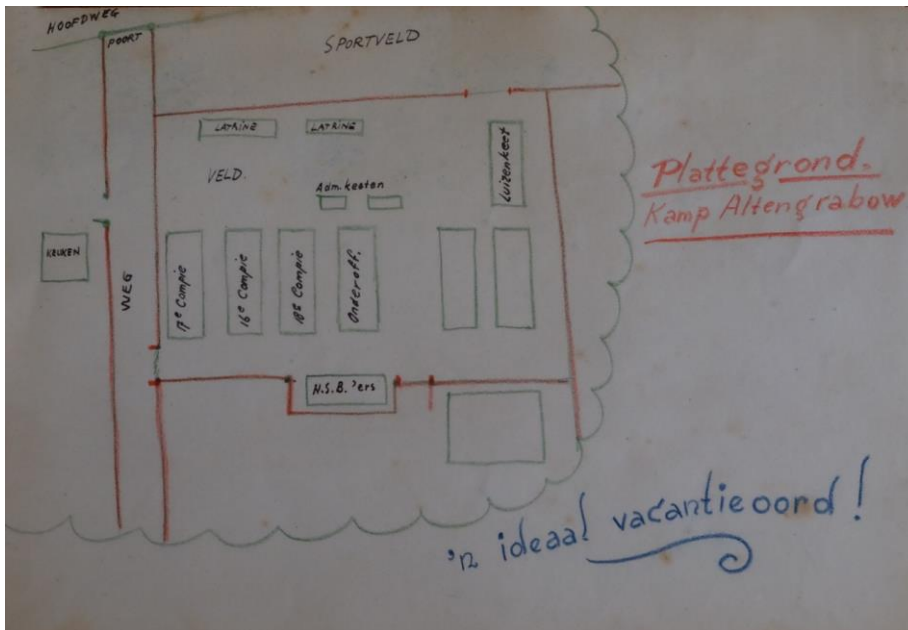 HOOFDWEG
POORT
SPORTVELD
LATRINE
LATRINE
Luizenkeet
VELD.
Adm. keeten
KEUKEN
WEG
17e Compie
16e Compie
18e Compie
Onderoff.
N.S.B.'ers
Plattegrond.
Kamp Altengrabow
'n ideaal vacantieoord!